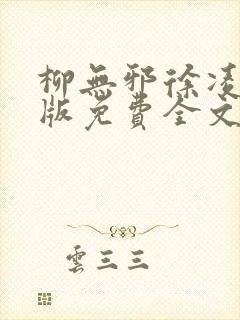 柳無邪徐凌
版免費全文
雲三三